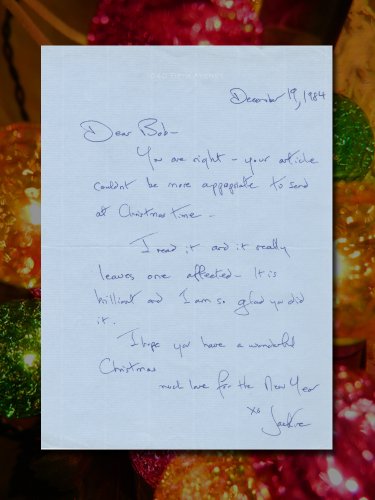 1040 FIFTH AVENUE
December 19, 1984
Dear Bob-
You are right - your article
couldnt be more appropriate to send
at Christmas time -
I read it and it really
leaves one affected - It is
brilliant and I am so glad you did
it.
I hope you have a wonderful
Christmas
much love for the New Year
xo Jackie